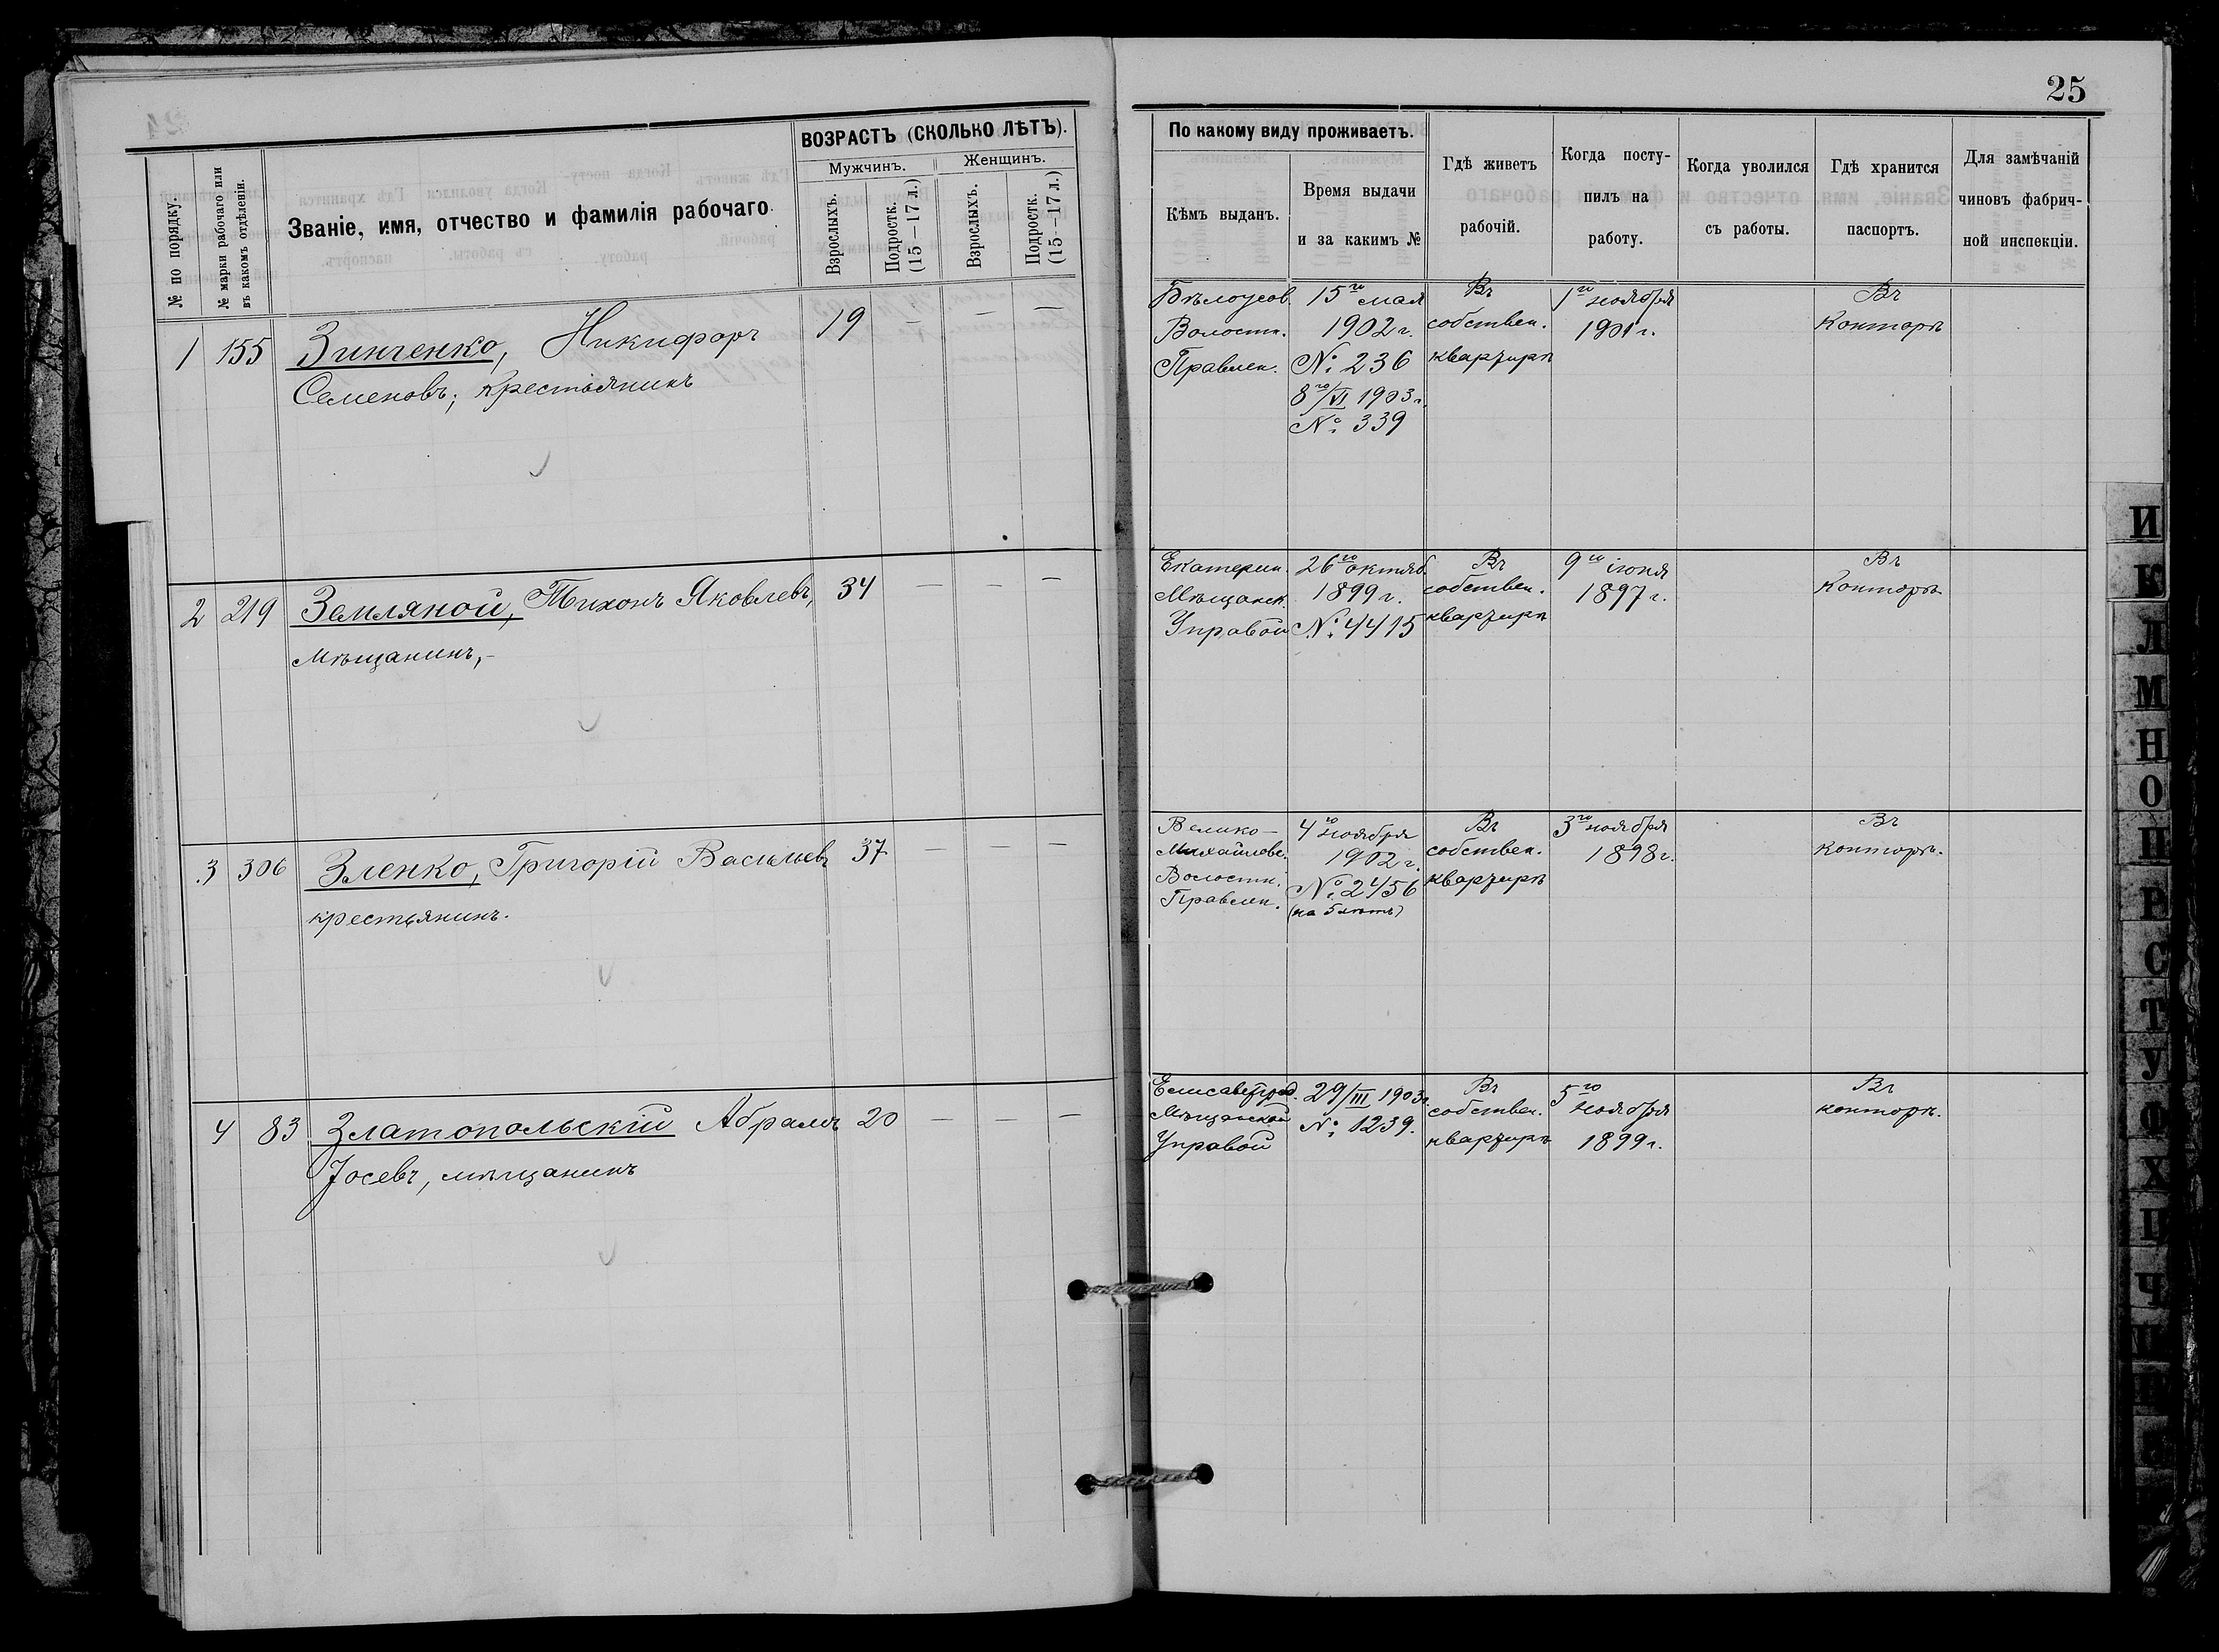 25
№ по порядку.
№ марки рабочаго или
въ какомъ отдѣленіи.
Званіе, имя, отчество и фамилія рабочаго.
ВОЗРАСТЪ (СКОЛЬКО ЛѢТЪ).
Мужчинъ.
Женщинъ.
Взрослыхъ.
Подростк.
(15—17 л.)
Взрослыхъ.
Подростк.
(15—17 л.)
По какому виду проживаетъ.
Кѣмъ выданъ.
Время выдачи
и за какимъ №
Гдѣ живетъ
рабочій.
Когда посту-
пилъ на
работу.
Когда уволился
съ работы.
Гдѣ хранится
паспортъ.
Для замѣчаній
чиновъ фабрич-
ной инспекціи.
1 155 Зинченко, Никифоръ 19 — — —
Семеновъ; крестьянинъ
Бѣлоусов.
Волостн.
Правлен.
15го мая
1902 г.
№ 236
8го/VI 1903 г.
№ 339
Въ
собствен.
квартирѣ
1го ноября
1901 г.
Въ
Конторѣ
2 219 Земляной, Тихонъ Яковлевъ, 34 — — —
мѣщанинъ,-
Екатерин.
Мѣщанск.
Управой
26го октяб.
1899 г.
№ 4415
Въ
собствен.
квартирѣ
9го іюня
1897 г.
Въ
Конторѣ.
3 306 Зленко, Григорій Васильевъ 37 — — —
крестьянинъ.
Велико-
Михайловс.
Волостн.
Правлен.
4го ноября
1902 г.
№ 2456
(на 5 лѣтъ)
Въ
собствен.
квартирѣ
3го ноября
1898 г.
Въ
конторѣ.
4 83 Златопольскій Абрамъ 20 — — —
Іосевъ, мѣщанинъ
Елисаветград.
Мѣщанской
Управой
29/III 1903 г.
№ 1239.
Въ
собствен.
квартирѣ
5го
ноября
1899 г.
Въ
конторѣ.
И
К
Л
М
Н
О
П
Р
С
Т
У
Ф
Х
Ц
Ч